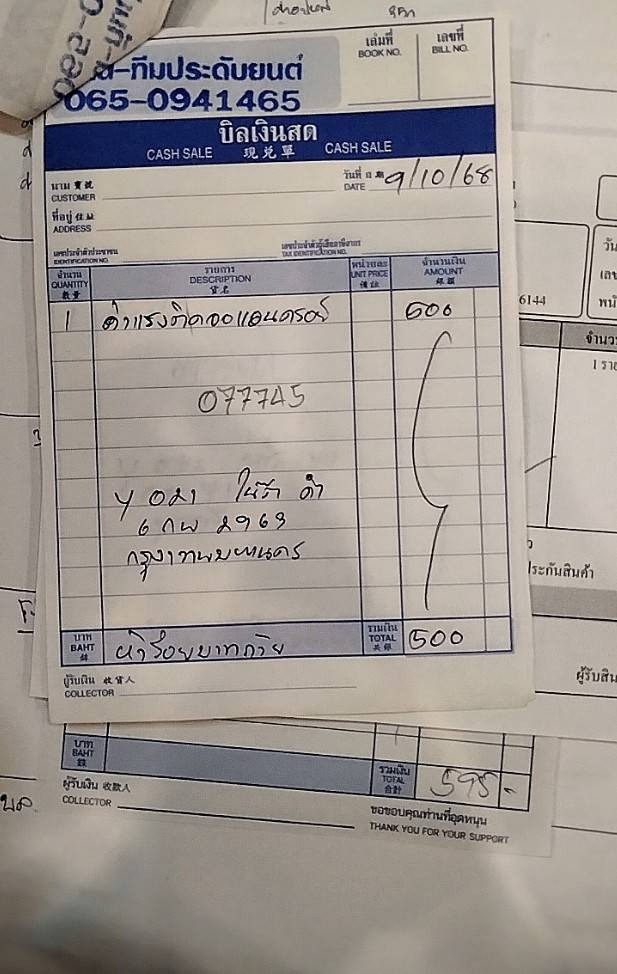 ทีมประดับยนต์
065-0941465
เล่มที่
BOOK NO.
เลขที่
BILL NO.
บิลเงินสด
CASH SALE 現兌單 CASH SALE
นาม 寶號
CUSTOMER
วันที่ 日期
DATE 9/10/68
ที่อยู่ 住址
ADDRESS
เลขประจำตัวประชาชน
IDENTIFICATION NO.
เลขประจำตัวผู้เสียภาษีอากร
TAX IDENTIFICATION NO.
จำนวน
QUANTITY
數量
รายการ
DESCRIPTION
貨名
หน่วยละ
UNIT PRICE
價錢
จำนวนเงิน
AMOUNT
銀碼
1 ค่าแรงติดจอแอนดรอย์ 500
077745
6 กพ 2963
กรุงเทพมหานคร
บาท
BAHT
銖
ห้าร้อยบาทถ้วย
รวมเงิน
TOTAL
共銀
500
ผู้รับเงิน 收貨人
COLLECTOR
บาท
BAHT
銖
รวมเงิน
TOTAL
合計
595-
ผู้รับเงิน 收款人
COLLECTOR
ขอขอบคุณท่านที่อุดหนุน
THANK YOU FOR YOUR SUPPORT
6144
ประกันสินค้า